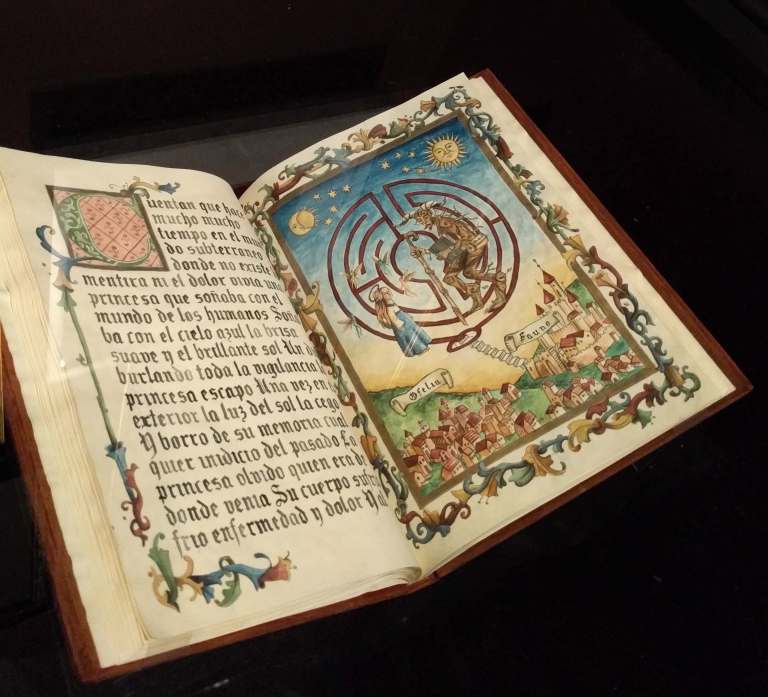 Cuentan que hace
mucho mucho
tiempo en el mun
do subterraneo
donde no existe
mentira ni el dolor vivia una
princesa que soñaba con el
mundo de los humanos Soña
ba con el cielo azul la brisa
suave y el brillante sol Un
burlando toda la vigilancia
princesa escapo Una vez en
exterior la luz del sol la cego
Y borro de su memoria cual
quier indicio del pasado
princesa olvido quien era de
donde venia Su cuerpo
frio enfermedad y dolor
Fauno
Ofelia